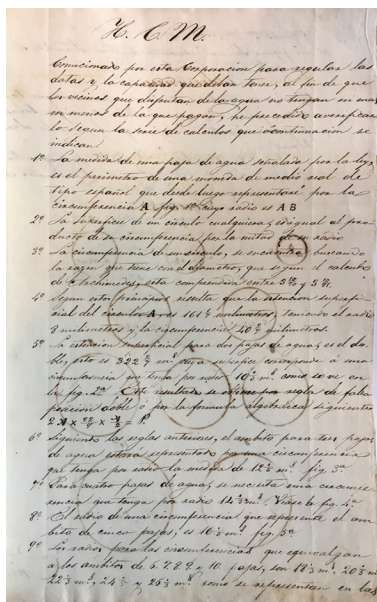 H. C. M.
Comicionado por esta Corporacion para regular las
datas y la capacidad que deban tener, al fin de que
los vecinos que disputan de la agua no tengan en mas
ni menos de la que pagan, he procedido a verificar
lo segun la serie de calculos que acontinuacion se
indican.
1º La medida de una paja de agua señalada por la ley,
es el perimetro de una moneda de medio real de
tipo español que desde luego representaré por la
circumferencia A fig. 1ª cuyo radio es A B
2º La superficie de un circulo cualquiera, es igual al pro-
ducto de su circumferencia por la mitad de su radio
3º La circumferencia de un circulo, se encuentra buscando
la razon que tiene con el diametro, que segun el calculo
de Archimedes, esta comprendida entre
4º Segun estos principios resulta que la estencion superfi-
cial del circulo A, es 161 milimetros, teniendo el radio
8 milimetros y la circumferencia 40 milimetros.
5º La estencion superficial para dos pajas de agua, es el do-
ble, esto es 322 m.s cuya superficie corresponde á una
circumferencia que tenga por radio 10 m.s como se ve en
la fig. 2ª Este resultado se obtiene por regla de falsa
posicion doble ó por la formula algebraica siguiente
6º Siguiendo las reglas anteriores, el ambito para tres pajas
de agua estará representado por una circumferencia
que tenga por radio la medida de 12 m.s fig. 3ª
7º Para cuatro pajas de agua, se necesita una circumfe-
rencia que tenga por radio 14 m.s Vease la fig. 4ª
8º El radio de una circumferencia que represente el am-
bito de cinco pajas, es 16 m.s fig. 5ª
9º Los radios para las circumferencias que equivalgan
a los ambitos de 6. 7. 8. 9. y 10. pajas, son 18 m.s 20 m.s
22 m.s, 24 y 26 m.s como se representan en las